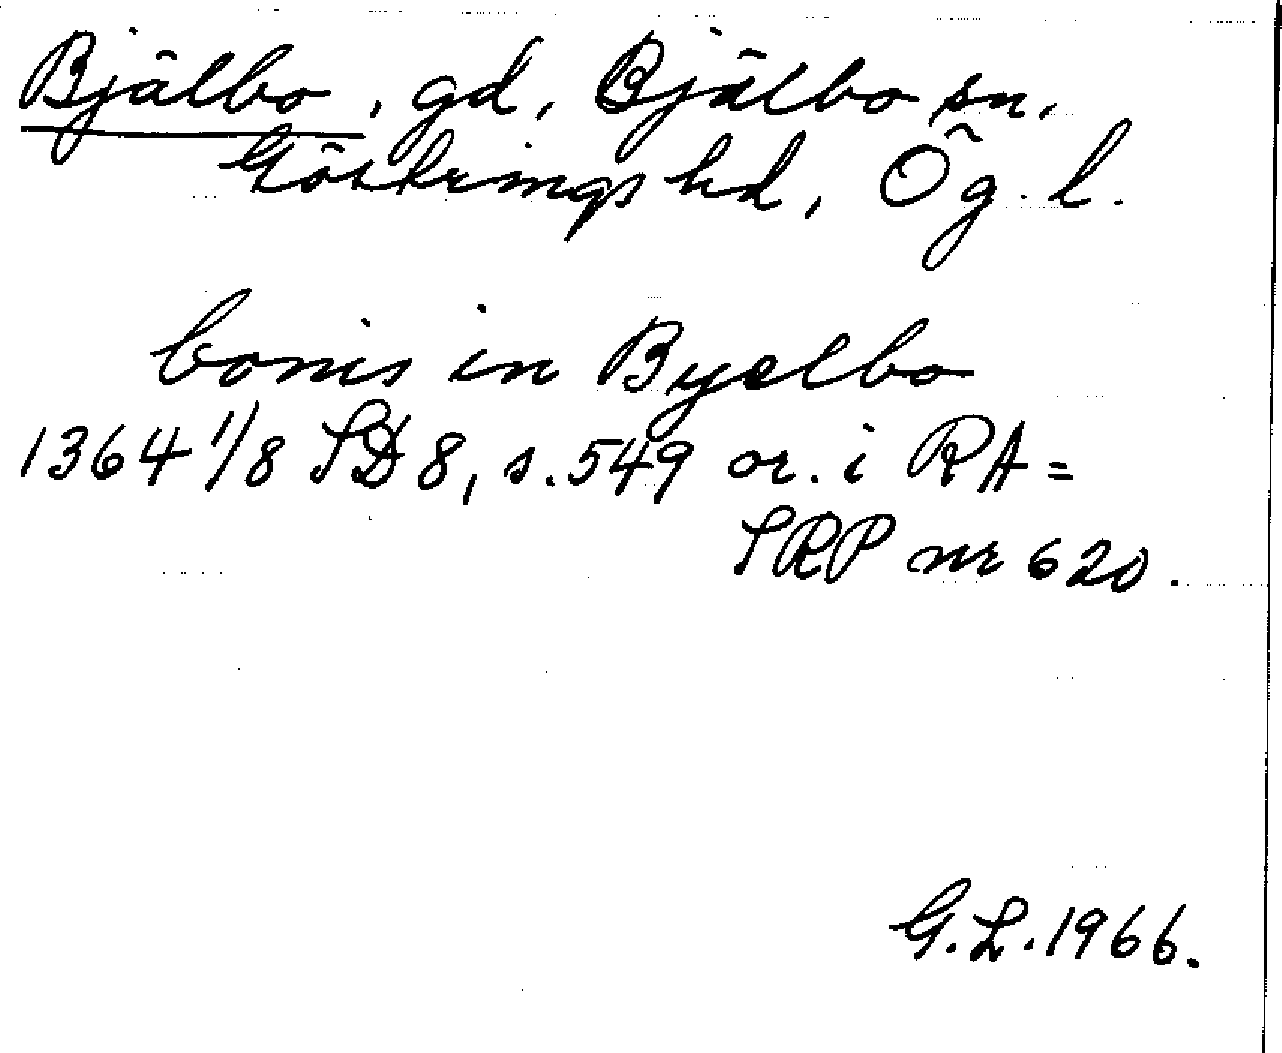 Bjälbo, gd, Bjälbo sn,
Göstrings hd, Ög. l.
bonis in Byelbo
1364 1/8 SD 8, s. 549 or. i RA =
SRP nr 620.
G. L. 1966.